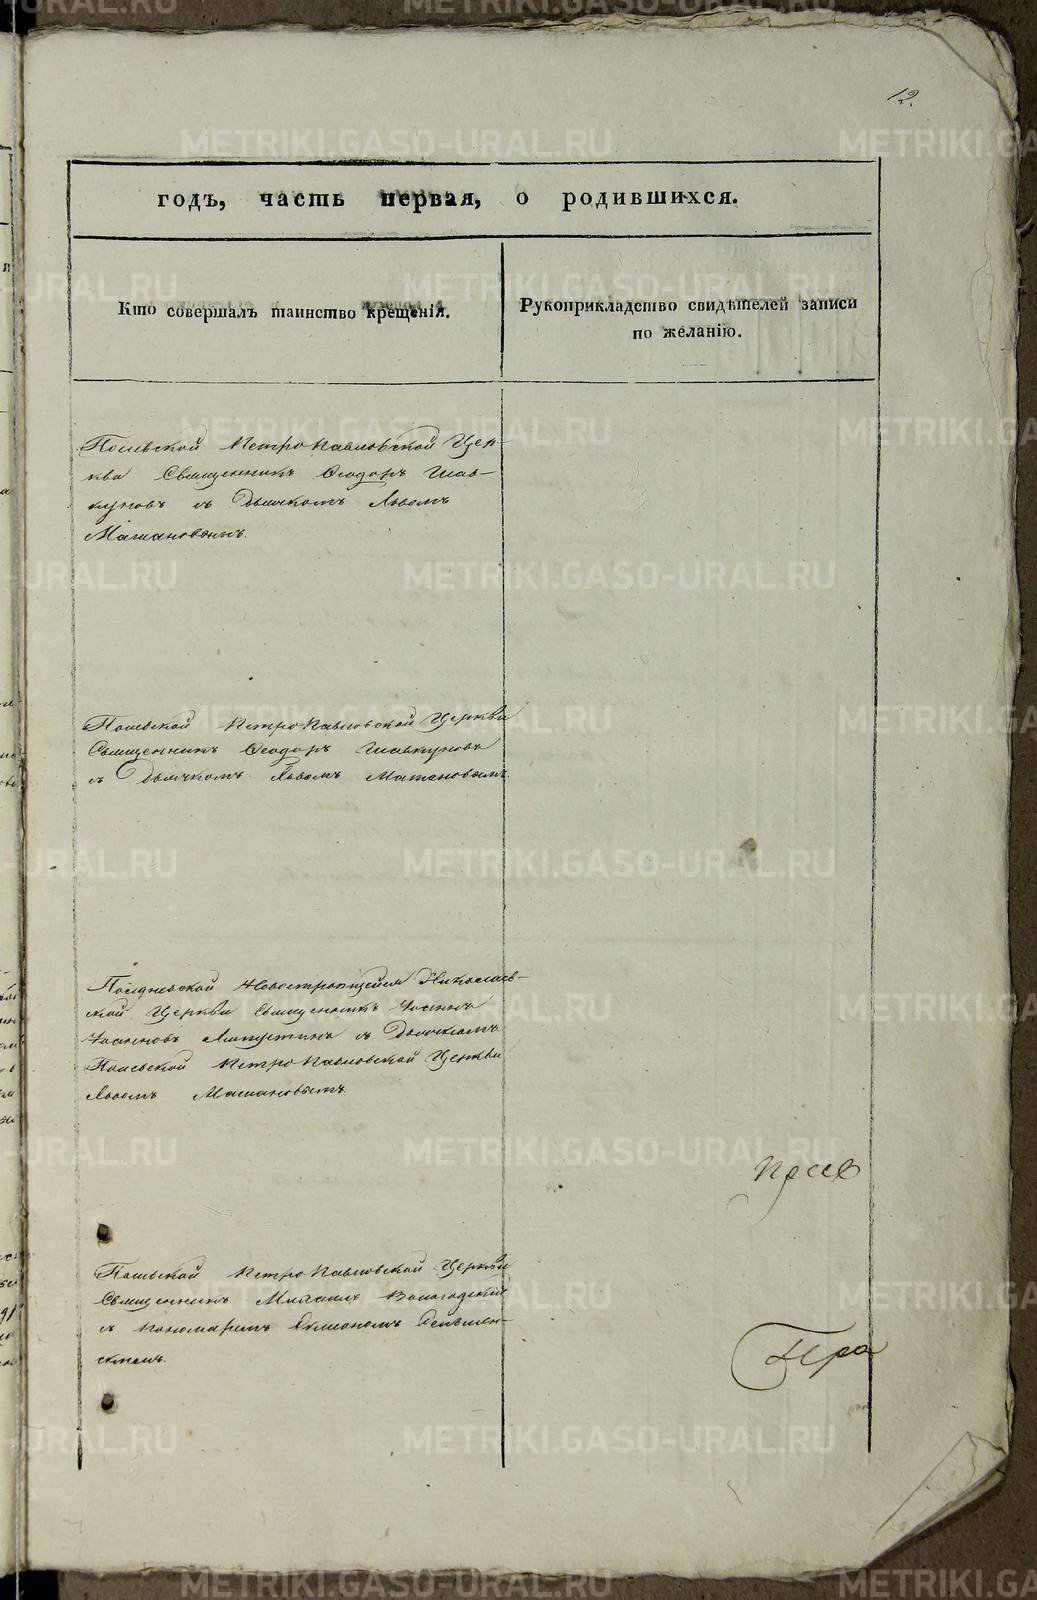 12.
годъ, часть первая, о родившихся.
Кто совершалъ таинство крещенія.
Рукоприкладство свидѣтелей записи
по желанію.
Петропавловской Цер-
кви Священникъ Ѳеодоръ Шав-
куновъ съ Дьячкомъ Львомъ
Машановымъ.
Петропавловской Церкви
Священникъ Ѳеодоръ Шавкуновъ
съ Дьячкомъ Львомъ Машановымъ.
Новостроющейся Николаев-
ской Церкви Священникъ Іоаннъ
Іоанновъ съ Дьячкомъ
Петропавловской Церкви
Львомъ Машановымъ.
Петропавловской Церкви
Священникъ Михаилъ Вологодскій
съ Пономаремъ
METRIKI.GASO-URAL.RU